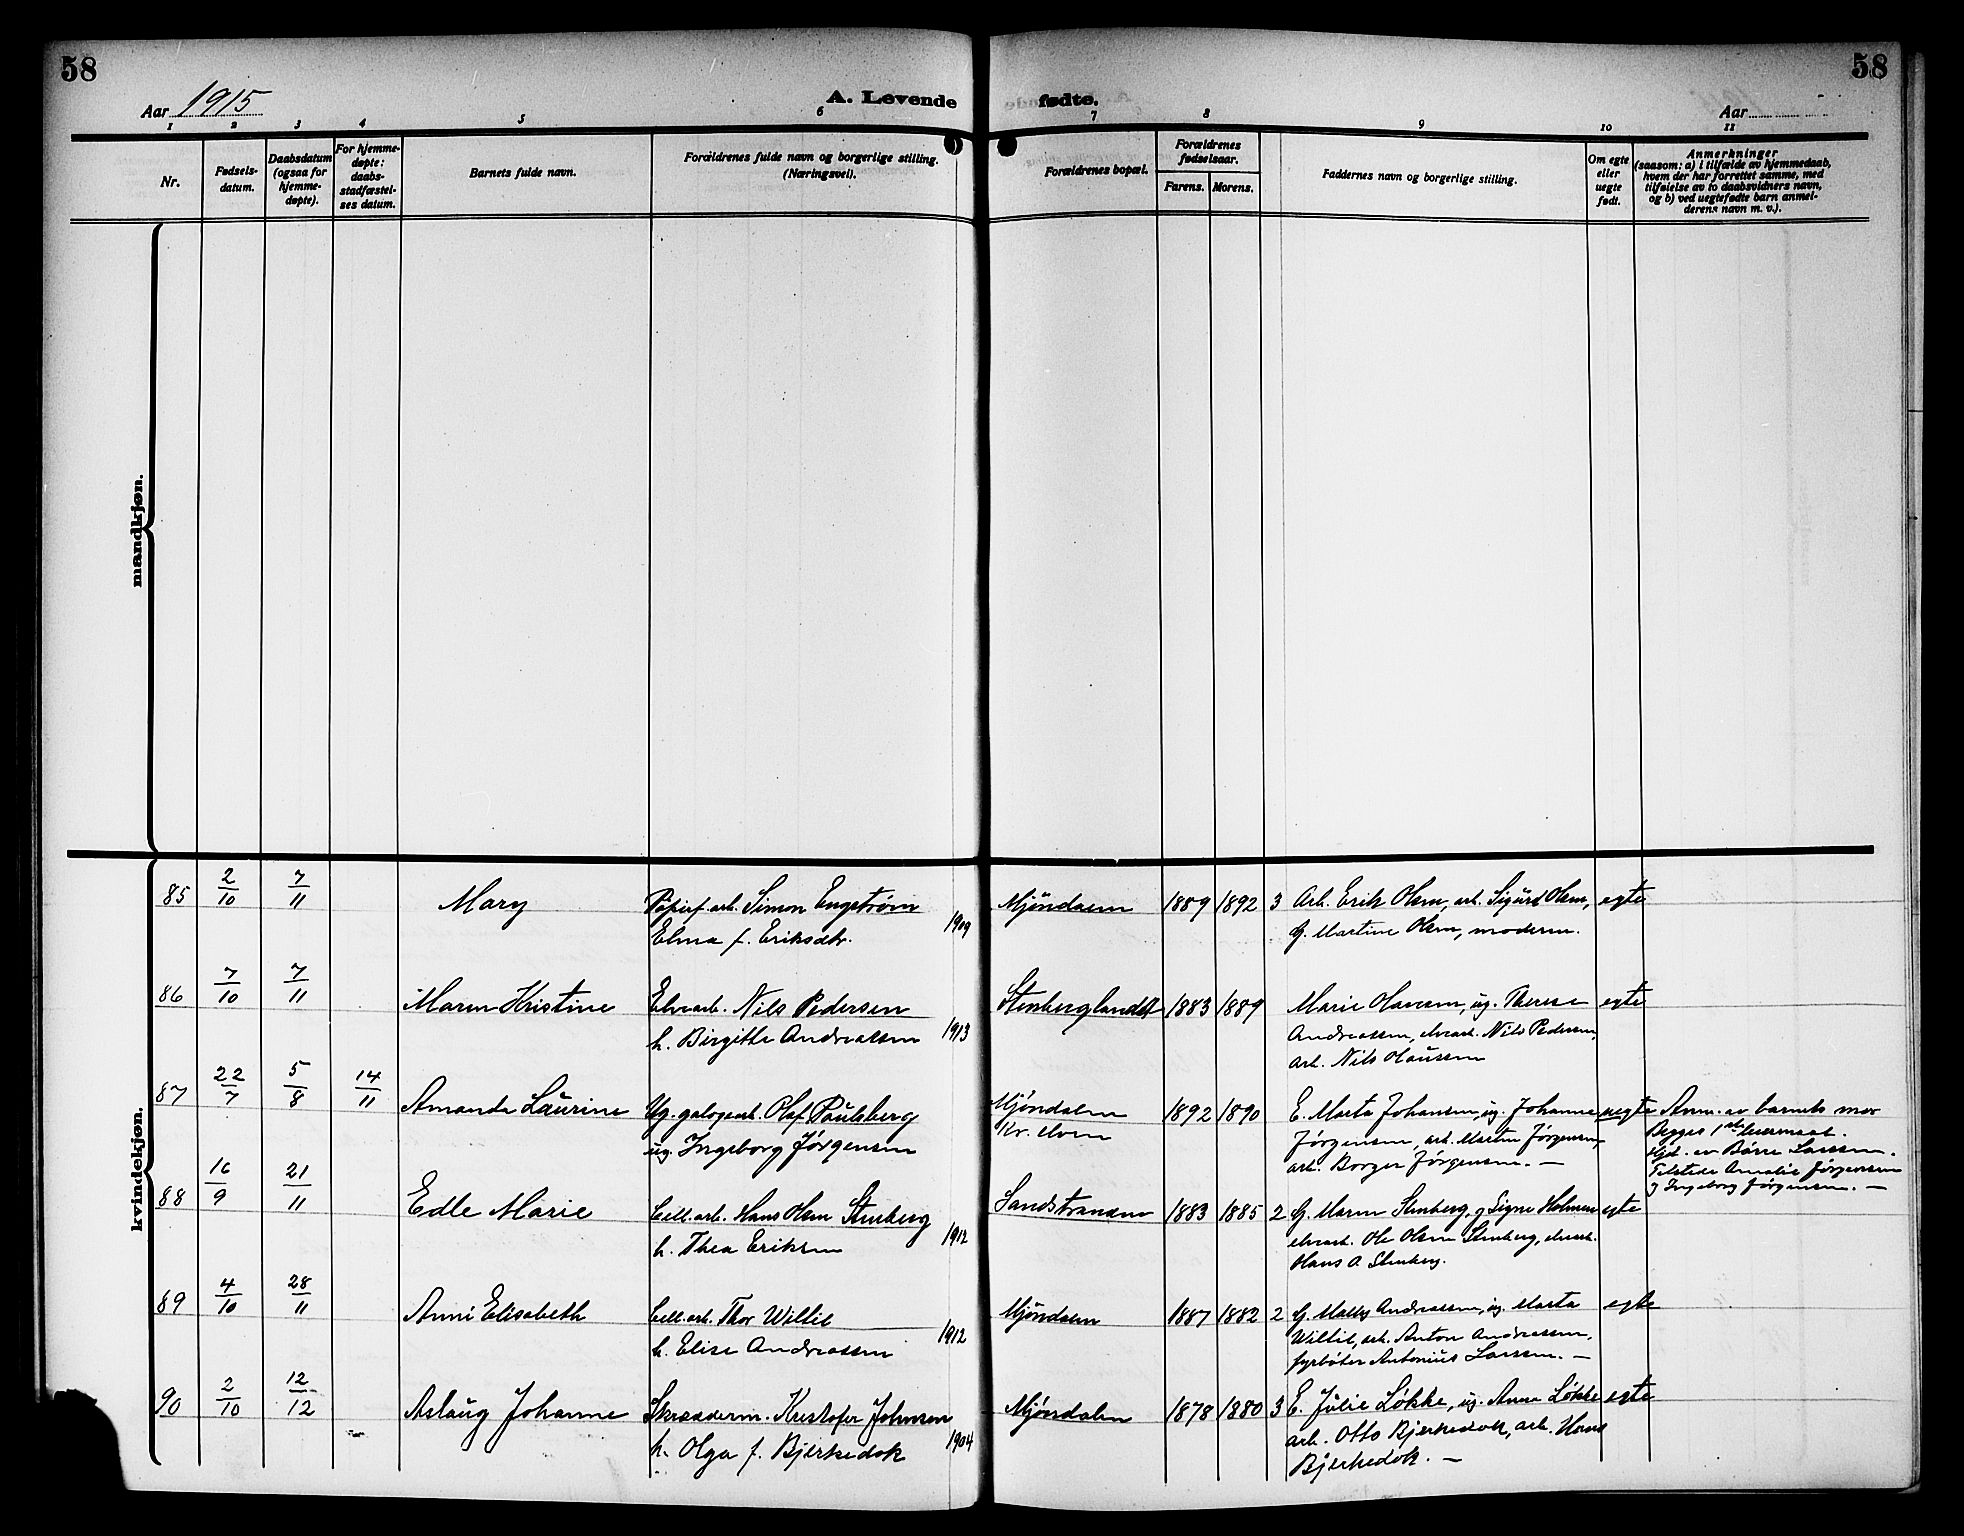 58
58
Aar 1915
A. Levende fødte.
Aar
1 2 3 4 5 6 7 8 9 10 11
Nr.
Fødsels-
datum.
Daabsdatum
(ogsaa for
hjemme-
døpte).
For hjemme-
døpte:
daabs-
stadfæstel-
ses datum.
Barnets fulde navn.
Forældrenes fulde navn og borgerlige stilling.
(Næringsvei).
Forældrenes bopæl.
Forældrenes
fødselsaar.
Farens. Morens.
Faddernes navn og borgerlige stilling.
Om egte
eller
uegte
født.
Anmerkninger
(saasom: a) i tilfælde av hjemmedaab,
hvem der har forrettet samme, med
tilføielse av to daabsvidners navn,
og b) ved uegtefødte barn anmel-
derens navn m. v.).
mandkjøn.
kvindekjøn.
85 2/10 7/11 Mary Papirf. arb. Simon Engstrøm Mjøndalen 1889 1892 3 Arb. Erik Olsen, arb. Sigurd Olsen, egte
Elma f. Eriksdtr. 1909 G. Martine Olsen, moderen.
86 7/10 7/11 Maren Kristine Elvearb. Nils Pedersen Stenberglandet 1883 1889 Marie Hansen, ug. Therese egte
h. Birgitte Andreassen 1913 Andreassen, elvearb. Nils Pedersen,
arb. Nils Clausen
87 22/7 5/8 14/11 Amanda Laurine Ug. galogearb. Olaf Paulsberg Mjøndalen 1892 1890 E. Marta Johansen, ug. Johanne uegte Anm. av barnets mor
ug. Ingeborg Jørgensen Jørgensen, arb. Morten Jørgensen, Begges 1ste leiermaal.
arb. Borger Jørgensen. — Hjd. av Børre Larssen.
Tilstede Amalie Jørgensen
g Ingeborg Jørgensen. —
88 16/9 21/11 Edle Marie Cell. arb. Hans Olsen Stenberg Sandstranden 1883 1885 2 G. Maren Stenberg, g Signe Holmen egte
h. Thea Eriksen 1912 elvearb. Ole Olsen Stenberg, elvearb.
Hans A. Stenberg.
89 4/10 28/11 Anni Elisabeth Cell. arb. Thor Wiltil Mjøndalen 1887 1882 2 G. Mally Andreassen, ug. Marta egte
h. Elise Andreassen 1912 Wiltil, arb. Anton Andreassen,
fyrbøter Antonius Larssen. —
90 2/10 12/12 Aslaug Johanne Skrædderm. Kristofer Johnsen Mjøndalen 1878 1880 3 E. Julie Løkke, ug. Anna Løkke egte
h. Olga f. Bjerkedok 1904 arb. Otto Bjerkedok, arb. Hans
Bjerkedok. —